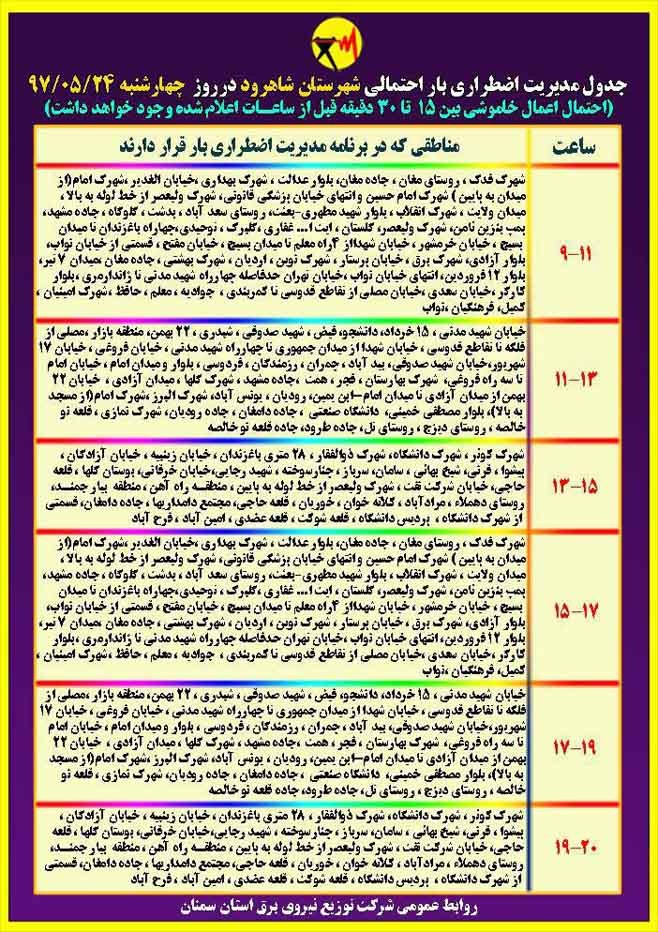 جدول مدیریت اضطراری بار احتمالی شهرستان شاهرود در روز چهارشنبه ۹۷/۰۵/۲۴
(احتمال اعمال خاموشی بین ۱۵ تا ۳۰ دقیقه قبل از ساعات اعلام شده وجود خواهد داشت)
ساعت
مناطقی که در برنامه مدیریت اضطراری بار قرار دارند
۹-۱۱
شهرک فدک ، روستای مغان ، جاده مغان، بلوار عدالت ، شهرک بهداری ،خیابان الغدیر ،شهرک امام(از
میدان به پایین ) شهرک امام حسین و انتهای خیابان پزشکی قانونی، شهرک ولیعصر از خط لوله به بالا،
میدان ولایت ، شهرک انقلاب ، بلوار شهید مطهری-بعثت، روستای سعد آباد ، بدشت ، گلوگاه ، جاده مشهد،
پمپ بنزین ثامن، شهرک ولیعصر، گلستان ، آیت ا... غفاری ، گلبرگ ، توحیدی،چهارراه باغزندان تا میدان
بسیج ، خیابان خرمشهر ، خیابان شهدااز ۴راه معلم تا میدان بسیج ، خیابان مفتح ، قسمتی از خیابان نواب،
بلوار آزادی، شهرک برق ، خیابان پرستار ، شهرک نوین ، اردیان ، شهرک بهشتی ، جاده مغان ،میدان ۷ تیر،
بلوار ۱۲ فروردین، انتهای خیابان نواب، خیابان تهران حدفاصله چهارراه شهید مدنی تا ژاندارمری ، بلوار
کارگر ، خیابان سعدی ،خیابان مصلی از تقاطع قدوسی تا کمربندی ، جوادیه ، معلم ، حافظ ،شهرک امینیان ،
کمیل، فرهنگیان ،نواب
۱۱-۱۳
خیابان شهید مدنی ، ۱۵ خرداد، دانشجو، فیض ، شهید صدوقی ، شیدری ، ۲۲ بهمن، منطقه بازار ،مصلی از
فلکه تا تقاطع قدوسی ، خیابان شهدا از میدان جمهوری تا چهارراه شهید مدنی ، خیابان فروغی ، خیابان ۱۷
شهریور،خیابان شهید صدوقی، بید آباد ، چمران ، رزمندگان ، فردوسی ، بلوار و میدان امام ، خیابان امام
تا سه راه فروغی، شهرک بهارستان ، فجر ، همت ، جاده مشهد ، شهرک گلها ، میدان آزادی ، خیابان ۲۲
بهمن از میدان آزادی تا میدان امام-ابن یمین، رودیان ، یونس آباد، شهرک البرز ،شهرک امام(از مسجد
به بالا)، بلوار مصطفی خمینی، دانشگاه صنعتی ، جاده دامغان ، جاده رودیان، شهرک نمازی ، قلعه نو
خالصه ، روستای دیزج ، روستای تل، جاده طرود، جاده قلعه نو خالصه
۱۳-۱۵
شهرک کوثر ، شهرک دانشگاه، شهرک ذوالفقار ، ۲۸ متری باغزندان ، خیابان زینبیه ، خیابان آزادگان ،
پیشوا ، قرنی، شیخ بهائی ، سامان، سرباز ، چنارسوخته ، شهید رجایی،خیابان خرقانی، بوستان گلها ، قلعه
حاجی، خیابان شرکت نفت ، شهرک ولیعصر از خط لوله به پایین ، منطقه راه آهن ، منطقه بیارجمند،
روستای دهملاء ، مرادآباد ، کلاته خوان ، خوریان ، قلعه حاجی، مجتمع دامداریها ، جاده دامغان، قسمتی
از شهرک دانشگاه ، پردیس دانشگاه ، قلعه شوکت ، قلعه عضدی ، امین آباد ، فرح آباد
۱۵-۱۷
شهرک فدک ، روستای مغان ، جاده مغان، بلوار عدالت ، شهرک بهداری ،خیابان الغدیر ،شهرک امام(از
میدان به پایین ) شهرک امام حسین و انتهای خیابان پزشکی قانونی، شهرک ولیعصر از خط لوله به بالا،
میدان ولایت ، شهرک انقلاب ، بلوار شهید مطهری-بعثت، روستای سعد آباد ، بدشت ، گلوگاه ، جاده مشهد،
پمپ بنزین ثامن، شهرک ولیعصر، گلستان ، آیت ا... غفاری ، گلبرگ ، توحیدی،چهارراه باغزندان تا میدان
بسیج ، خیابان خرمشهر ، خیابان شهدااز ۴راه معلم تا میدان بسیج ، خیابان مفتح ، قسمتی از خیابان نواب،
بلوار آزادی، شهرک برق ، خیابان پرستار ، شهرک نوین ، اردیان ، شهرک بهشتی ، جاده مغان ،میدان ۷ تیر،
بلوار ۱۲ فروردین، انتهای خیابان نواب، خیابان تهران حدفاصله چهارراه شهید مدنی تا ژاندارمری ، بلوار
کارگر ، خیابان سعدی ،خیابان مصلی از تقاطع قدوسی تا کمربندی ، جوادیه ، معلم ، حافظ ،شهرک امینیان ،
کمیل، فرهنگیان ،نواب
۱۷-۱۹
خیابان شهید مدنی ، ۱۵ خرداد، دانشجو، فیض ، شهید صدوقی ، شیدری ، ۲۲ بهمن، منطقه بازار ،مصلی از
فلکه تا تقاطع قدوسی ، خیابان شهدا از میدان جمهوری تا چهارراه شهید مدنی ، خیابان فروغی ، خیابان ۱۷
شهریور،خیابان شهید صدوقی، بید آباد ، چمران ، رزمندگان ، فردوسی ، بلوار و میدان امام ، خیابان امام
تا سه راه فروغی، شهرک بهارستان ، فجر ، همت ، جاده مشهد ، شهرک گلها ، میدان آزادی ، خیابان ۲۲
بهمن از میدان آزادی تا میدان امام-ابن یمین، رودیان ، یونس آباد، شهرک البرز ،شهرک امام(از مسجد
به بالا)، بلوار مصطفی خمینی، دانشگاه صنعتی ، جاده دامغان ، جاده رودیان، شهرک نمازی ، قلعه نو
خالصه ، روستای دیزج ، روستای تل، جاده طرود، جاده قلعه نو خالصه
۱۹-۲۰
شهرک کوثر ، شهرک دانشگاه، شهرک ذوالفقار ، ۲۸ متری باغزندان ، خیابان زینبیه ، خیابان آزادگان ،
پیشوا ، قرنی، شیخ بهائی ، سامان، سرباز ، چنارسوخته ، شهید رجایی،خیابان خرقانی، بوستان گلها ، قلعه
حاجی، خیابان شرکت نفت ، شهرک ولیعصر از خط لوله به پایین ، منطقه راه آهن ، منطقه بیارجمند،
روستای دهملاء ، مرادآباد ، کلاته خوان ، خوریان ، قلعه حاجی، مجتمع دامداریها ، جاده دامغان، قسمتی
از شهرک دانشگاه ، پردیس دانشگاه ، قلعه شوکت ، قلعه عضدی ، امین آباد ، فرح آباد
روابط عمومی شرکت توزیع نیروی برق استان سمنان